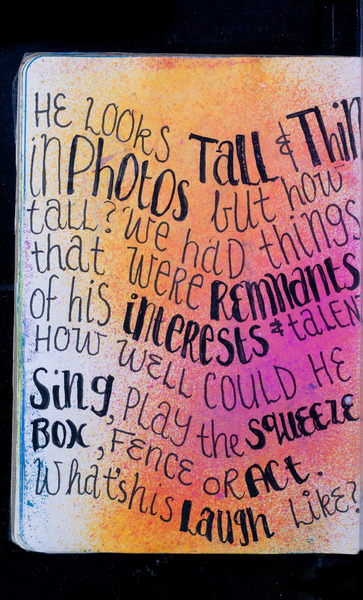 HE LOOKS TALL & THIN
in PHOTOS but how
tall? We had things
that were REMNANTS
of his interests & talEN
HOW WELL COULD HE
Sing, PLAY the SQUEEZE
BOX, FENCE OR ACT.
What's his Laugh LIKE?